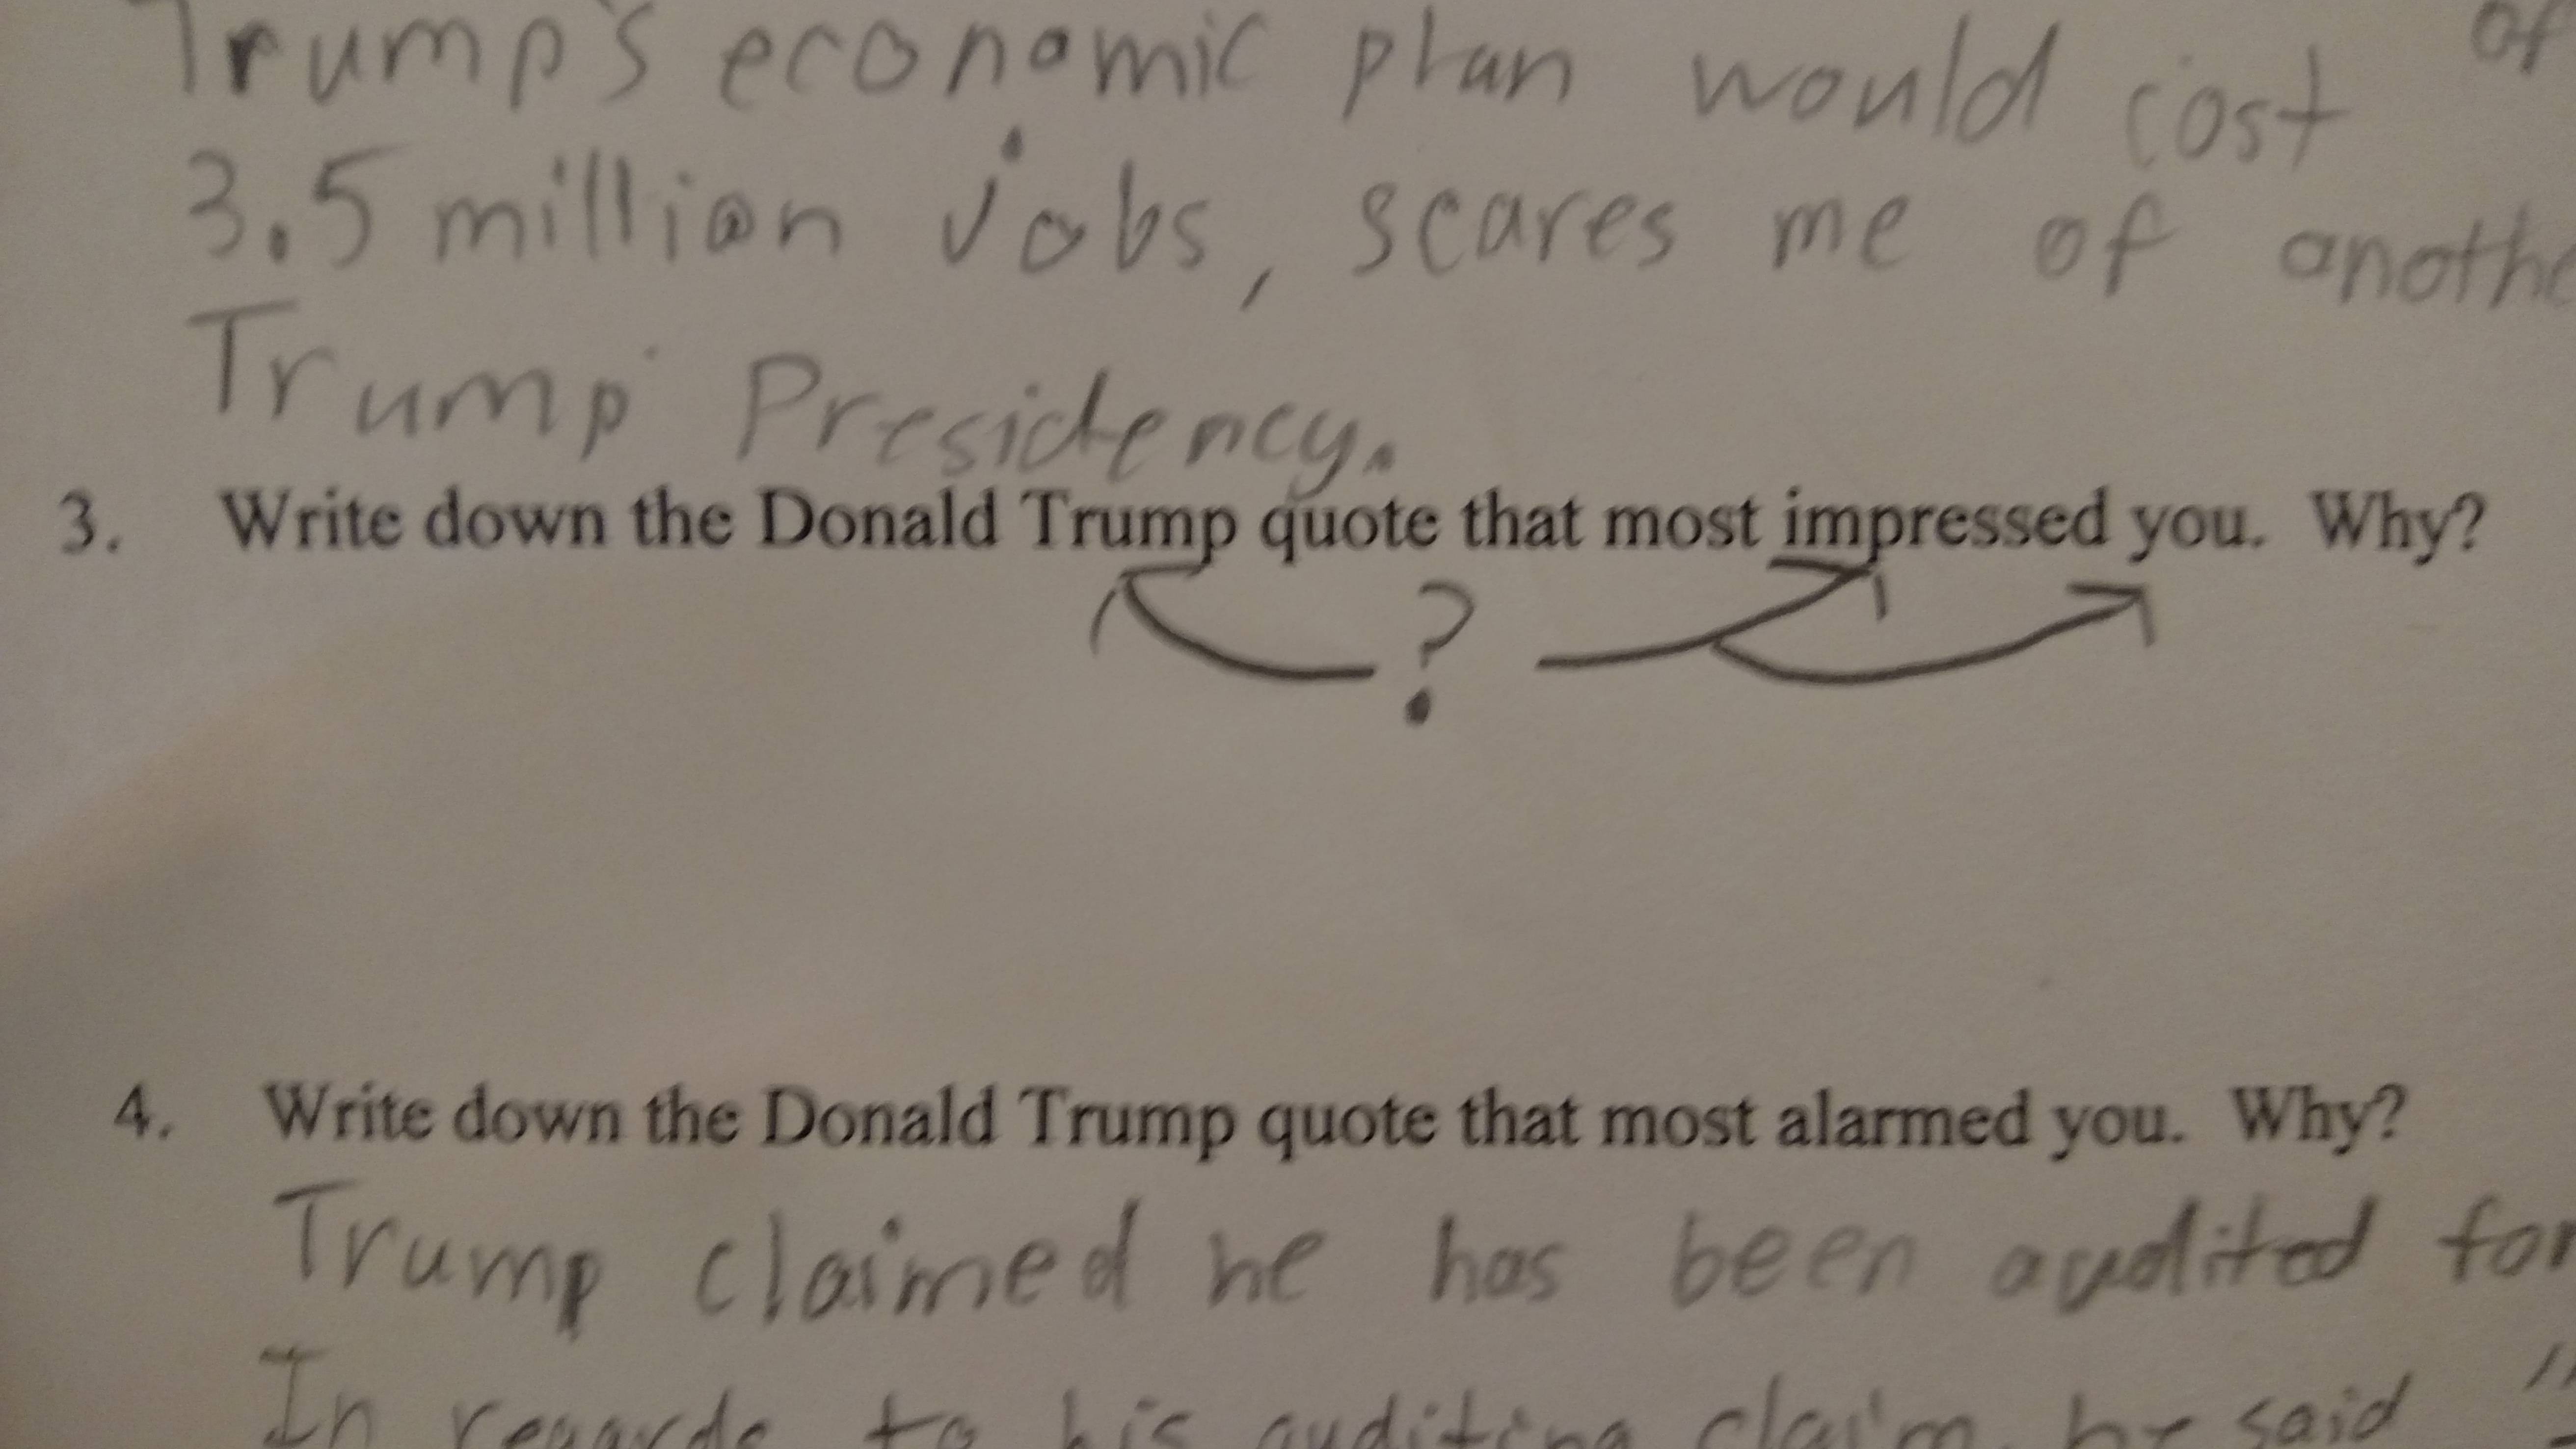 Trump's economic plan would cost of
3.5 million jobs, scares me of anothe
Trump Presidency.
3. Write down the Donald Trump quote that most impressed you. Why?
?
4. Write down the Donald Trump quote that most alarmed you. Why?
Trump claimed he has been audited for
In regards to his auditing claim, he said "